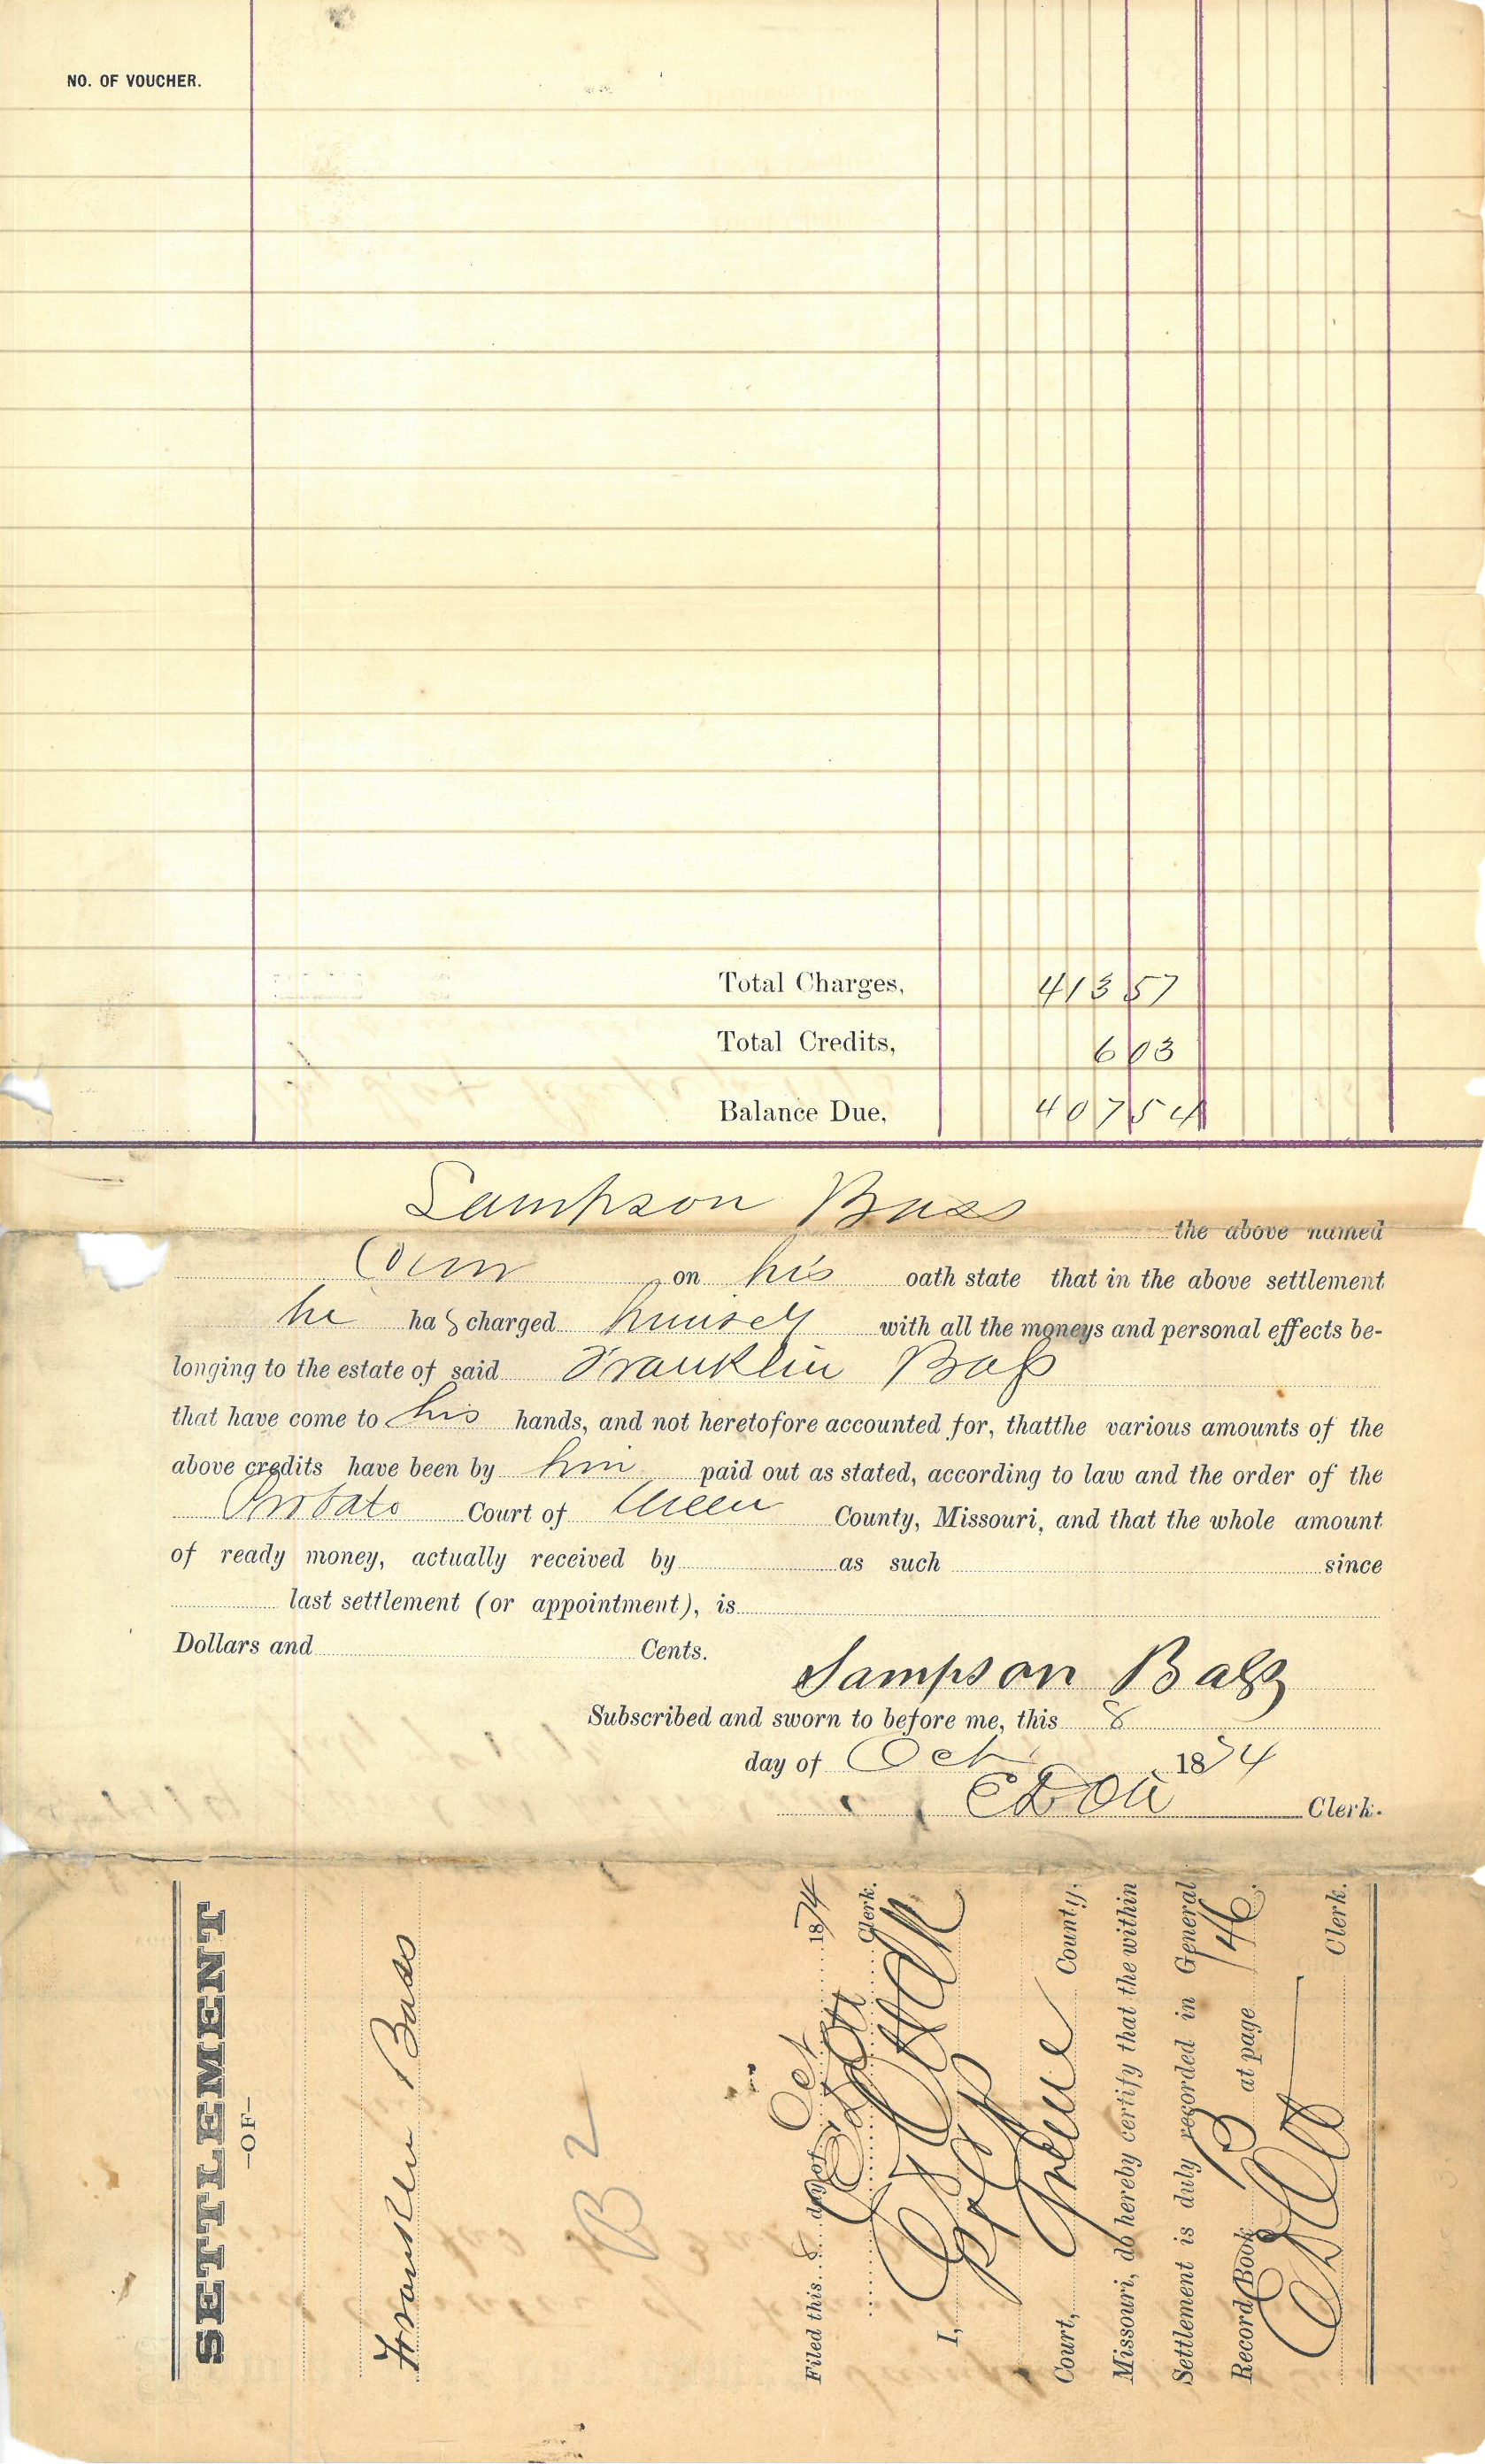 NO. OF VOUCHER.
Total Charges, 413 57
Total Credits, 6 03
Balance Due, 407 54
Sampson Bass the above named
on his oath state that in the above settlement
he has charged himself with all the moneys and personal effects be-
longing to the estate of said Franklin Bass
that have come to his hands, and not heretofore accounted for, thatthe various amounts of the
above credits have been by him paid out as stated, according to law and the order of the
Probate Court of Green County, Missouri, and that the whole amount
of ready money, actually received by as such since
last settlement (or appointment), is
Dollars and Cents.
Sampson Bass
Subscribed and sworn to before me, this 8
day of Oct 1874
E D Ott Clerk.
SETTLEMENT
—OF—
Franklin Bass
B 2
Filed this 8 day of Oct 1874
E D Ott Clerk.
I, E D Ott Clerk
of Probate
Court, Greene County,
Missouri, do hereby certify that the within
Settlement is duly recorded in General
Record Book B at page 146.
E D Ott Clerk.